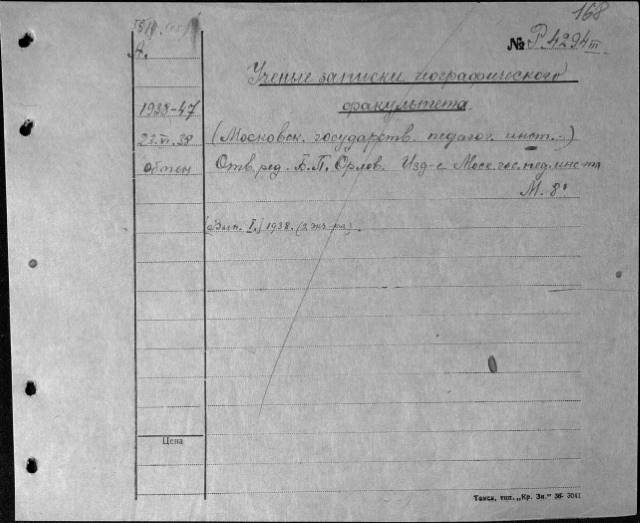 168
№ Р.4294 III
А.
Ученые записки географического
факультета
1938-47
(Московск. государств. педагог. инст.-)
22.VI.38
обмен
Отв. ред. Б.П. Орлов. Изд-е Моск. гос. пед. инст-та
М. 8°
[Вып. I.] 1938. (2 экз-ра).
Цена
Томск, тип. „Кр. Зн." 36- 3041